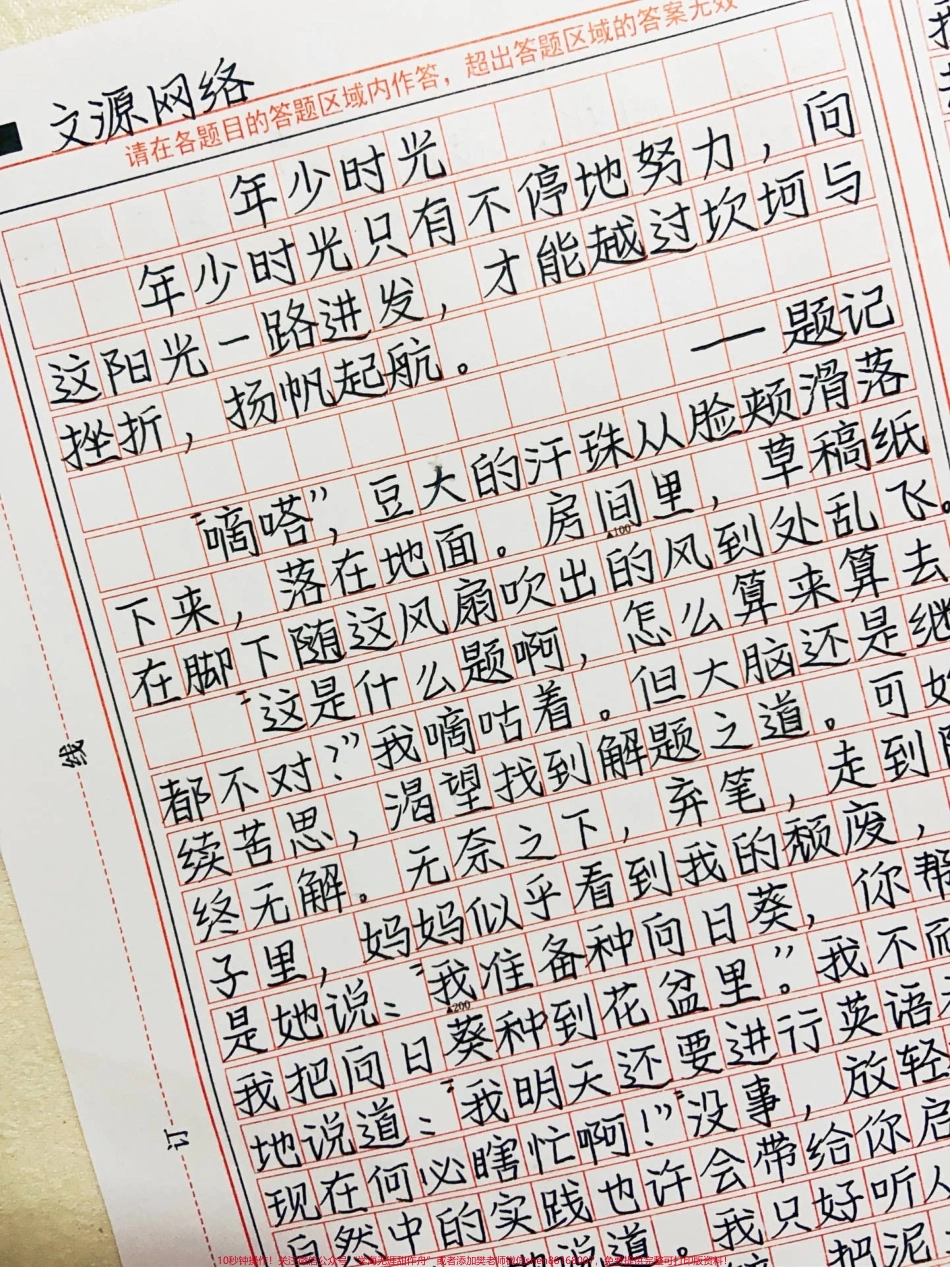 文源网络
请在各题目的答题区域内作答，超出答题区域的答案无效
年少时光
年少时光只有不停地努力，向
这阳光一路进发，才能越过坎坷与
挫折，扬帆起航。
——题记
“嘀嗒”，豆大的汗珠从脸颊滑落
下来，落在地面。房间里，草稿纸
▲100
在脚下随这风扇吹出的风到处乱飞。
“这是什么题啊，怎么算来算去
都不对？”我嘀咕着。但大脑还是继
续苦思，渴望找到解题之道。可始
终无解。无奈之下，弃笔，走到
子里，妈妈似乎看到我的颓废，
是她说：“我准备种向日葵，你帮
▲200
我把向日葵种到花盆里。”我不耐
地说道：“我明天还要进行英语
现在何必瞎忙啊！”“没事，放轻
自然中的实践也许会带给你启
说道。我只好听
把泥
线
订